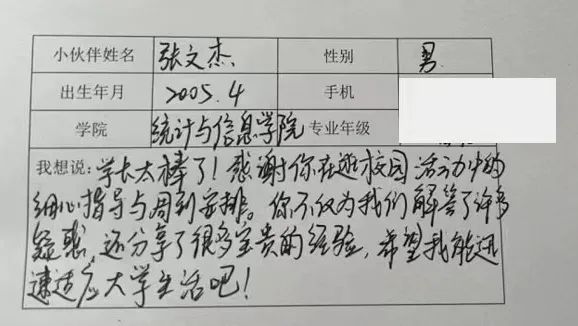 小伙伴姓名 张文杰 性别 男
出生年月 2005.4 手机
学院 统计与信息学院 专业年级
我想说：学长太棒了！感谢你在逛校园活动中的
细心指导与周到安排。你不仅为我们解答了许多
疑惑，还分享了很多宝贵的经验，希望我能迅
速适应大学生活吧！